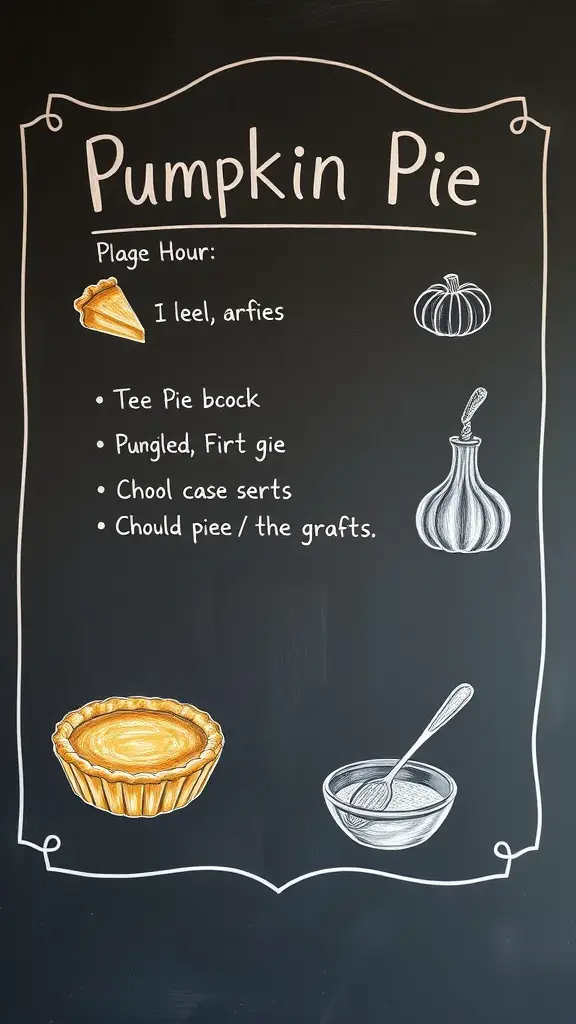 Pumpkin Pie
Plage Hour:
I leel, arfies
• Tee Pie bcock
• Pungled, Firt gie
• Chool case serts
• Chould piee / the grafts.